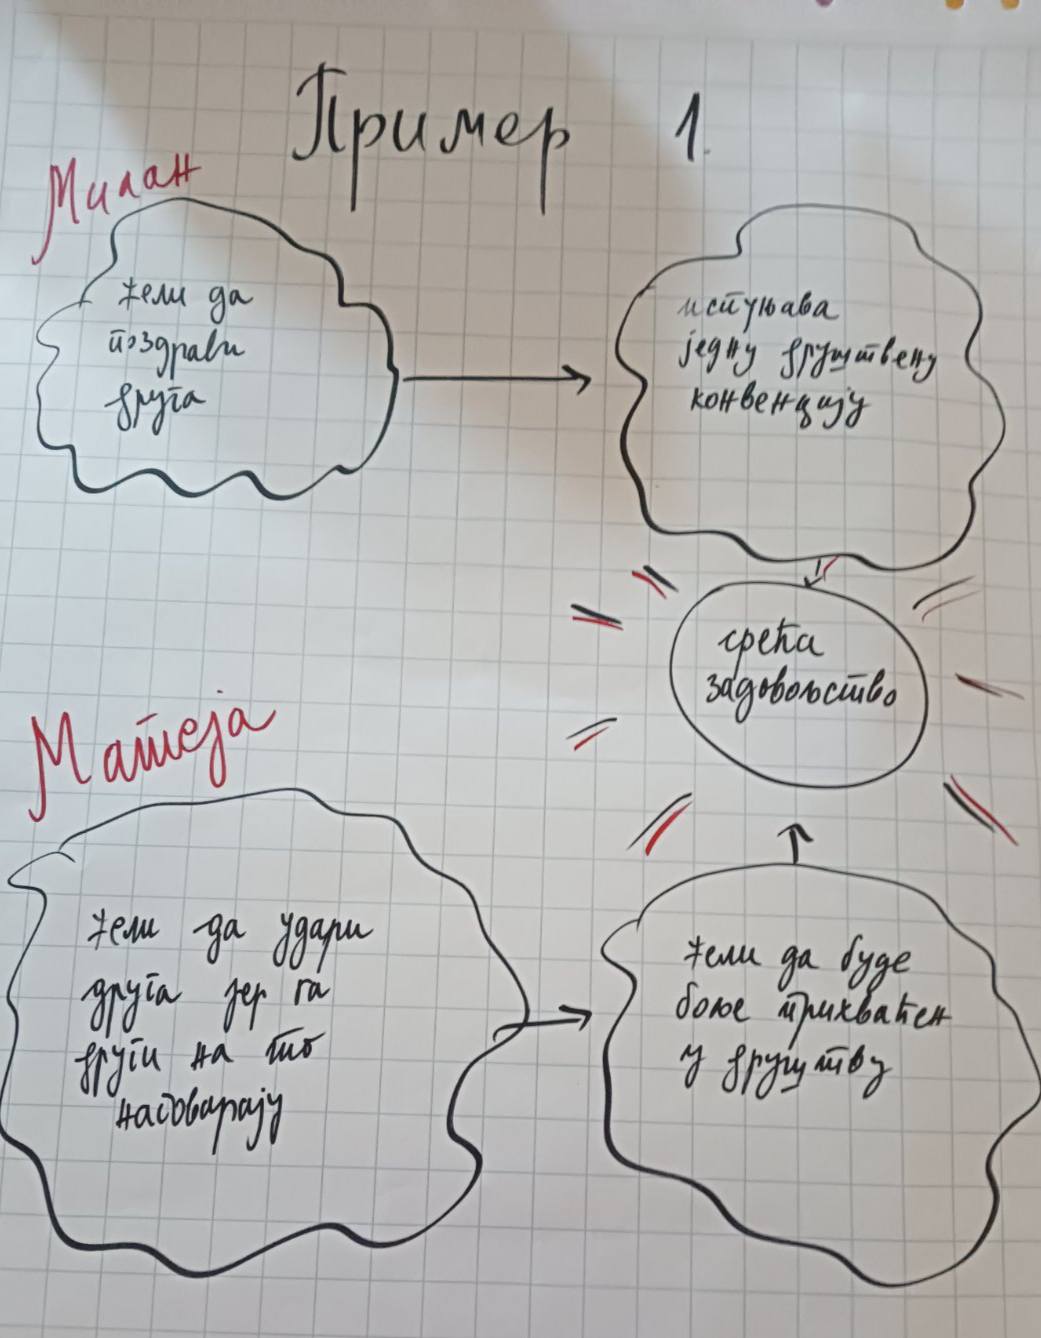 Пример 1.
Милан
жели да
поздрави
друга
испуњава
једну друштвену
конвенцију
срећа
задовољство
Матеја
жели да удари
друга јер га
други на то
наговарају
жели да буде
боље прихваћен
у друштву